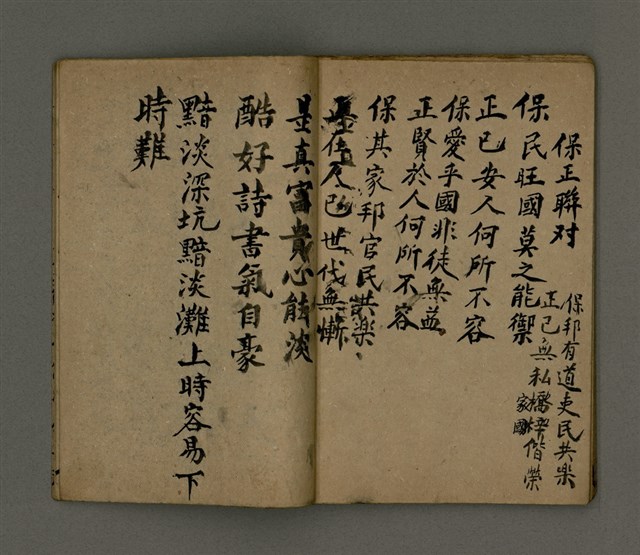 保正聯对
保邦有道吏民共樂
正己無私橋梓偕榮
家國
保民旺國莫之能禦
正己安人何所不容
保愛乎國非徒無益
正賢於人何所不容
保其家邦官民共樂
正在人已世代無慚
是真富貴心能淡
酷好詩書氣自豪
黯淡深坑黯淡灘上時容易下
時難